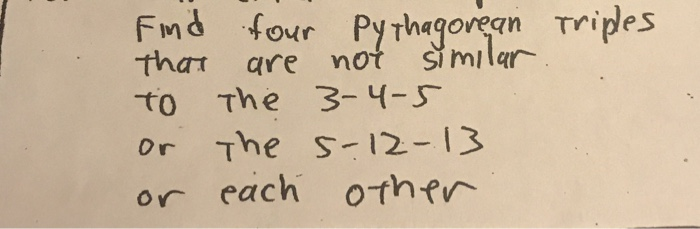 Find four Pythagorean Triples
that are not similar
to the 3-4-5
or the 5-12-13
or each other